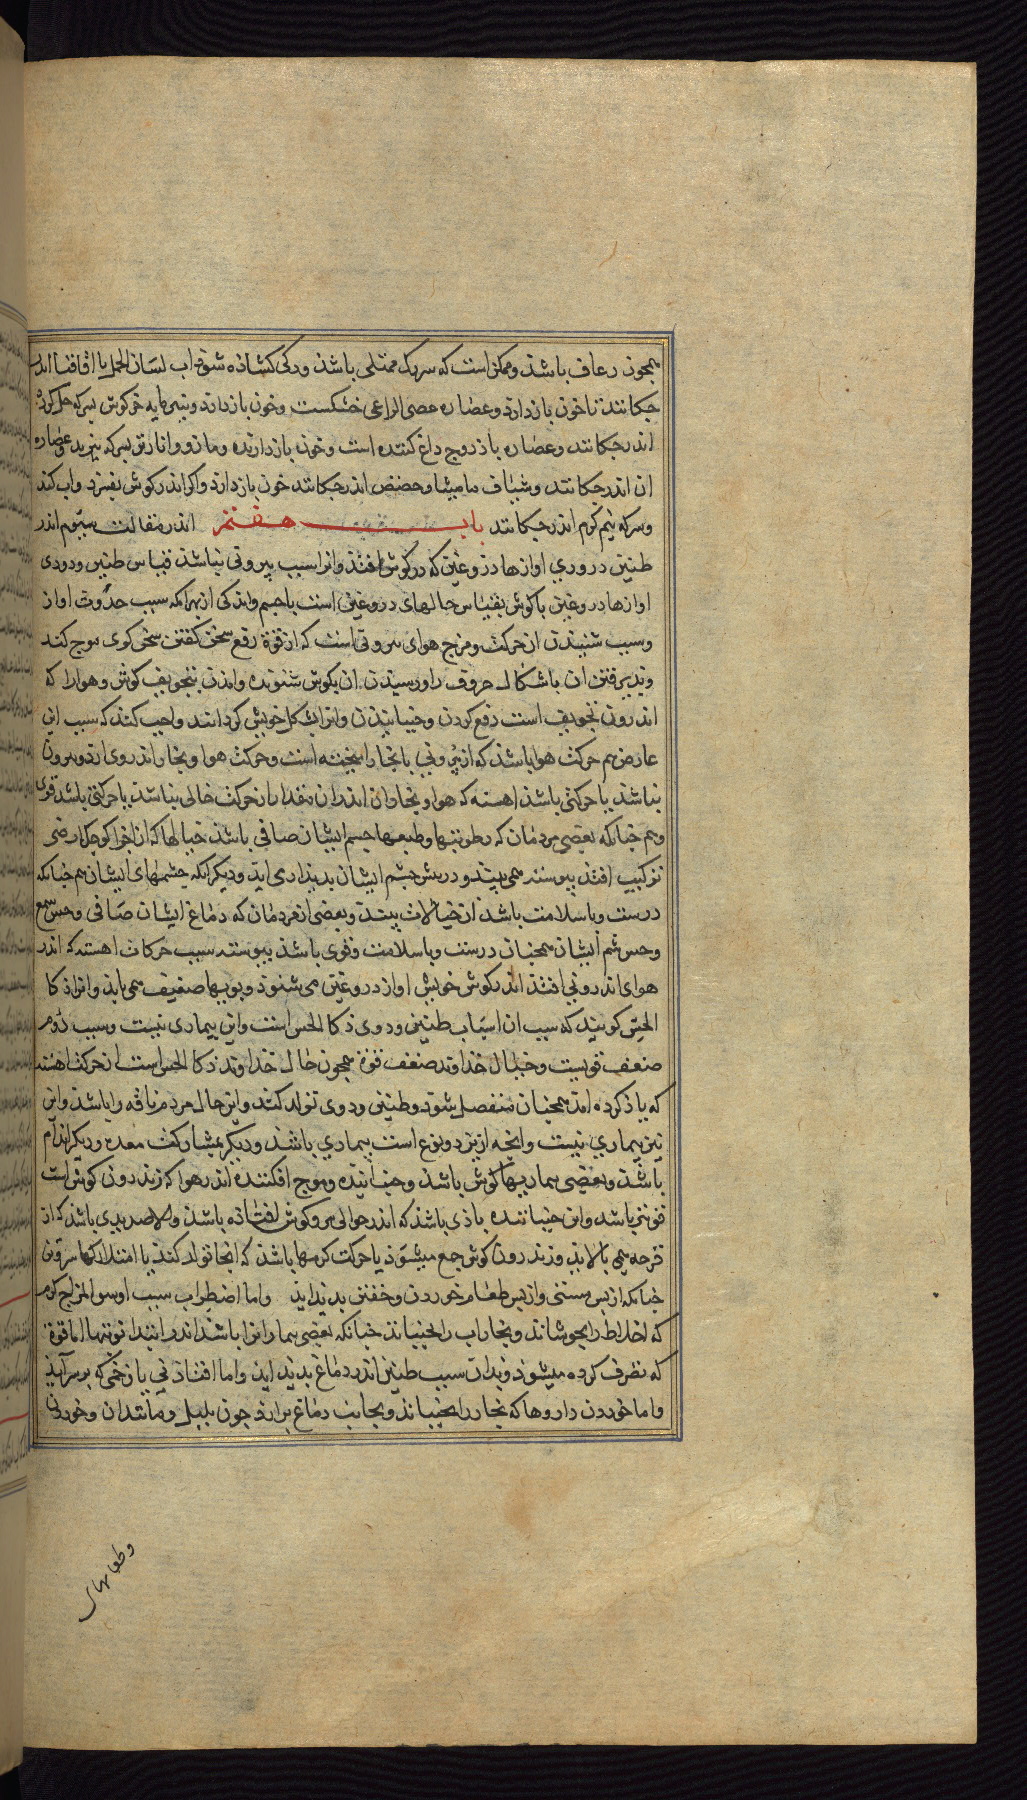 همجون رعاف باشد و ممکن است که سر یک ممتلی باشد و رکی کشاده شود اب لسان الحمل با اقاقیا اندر
جکانند تا خون باز دارد و عصاره عصی الراعی خشکست و خون باز دارد و پنیر مایه خرکوش بسرکه حل کرده
اندر جکانند و عصاره باذروج داغ کننده است و خون باز دارنده و مازو و انار ترش بسرکه بپزند و عصاره
ان اندر جکانند و شیاف مامیثا و حضض اندر جکانند خون باز دارد و اکر اندر کوش بفسرد واب کند
و سرکه نیم کرم اندر جکانند باب هفتم اندر مقالت سیوم اندر
طنین دروری اوازها دروغین که در کوش افتد و انرا سبب بیرونی نباشد قیاس طنین و دودی
اوازها دروغین با کوش بقیاس خالهای دروغین است با جسم و اندکی از بهر انکه سبب حدوث اواز
و سبب شنیدن از حرکت و موج هوای بیرونی است که از قوة رفع سخن کفتن سخن کوی موج کند
و پذیرفتن ان باشکال حروف را و رسیدن ان بکوش شنونده و اندن بتجویف کوش و هوا را که
اندرون تجویف است دفع کردن و جنبانیدن و انرا بشکل خویش کردانند واجب کند که سبب این
عارض هم حرکت هوا باشد که از بیرونی با بخار امیخته است و حرکت هوا و بخار اندروی از دو بیرون
نباشد یا حرکتی باشد اهسته که هوا و بخار ان اندران مقدار از حرکت خالی نباشد یا حرکتی باشد قوی
و هم جنانکه بعضی مردمان که رطوبتها و طبعها جسم ایشان صافی باشد خیالها که از اجزا کوجک ارضی
ترکیب افتد بیوسته همی بیند و در بیش چشم ایشان بدیداری اید و دیکر انکه چشمهای ایشان هم جنانکه
درست و با سلامت باشد ان خیالات بیند و بعضی از مردمان که دماغ ایشان صافی و حس سمع
و حس شم ایشان همجنان درست و با سلامت و قوی باشد بیوسته سبب حرکات اهسته که اندر
هوای اندرونی افتد اندر کوش خویش اواز دروغین می شنود و بویها ضعیف همی یابد و انرا ذکا
الحس کویند که سبب ان اسباب طنین و دوی ذکا الحس است و این بیماری نیست و سبب دوم
ضعف قویست و خیال خداوند ضعف قوة همجون حال خداوند ذکا الحس است از حرکت اهسته
که یاذ کرده امد همجنان منفصل شود و طنین و دوی تولد کند و این حال مردم ناقه را باشد و این
نیز بیماری نیست و انجه از این دو نوع است بیماری باشد و دیکر بمشارکت معده و دیکر اندام
باشد و بعضی بیماریها کوش باشد و جنباننده و موج افکننده اندر هوا که اندرون کوش است
قوتر باشد و این جنباننده باذی باشد که اندر حوالی سر و کوش افتاذه باشد و الا صدیدی باشد که از
قرحه همی بالاید و اندرون کوش جمع میشود یا حرکت کرمها باشد که انجا تولد کند یا امتلا رکها سر و تن
جنانکه از بس مستی و از بس طعام خوردن و خفتن بدیداید و اما اضطراب سبب او سو المزاج کرم
که اخلاط را بجوشاند و بخاراب را بجنباند جنانکه بعضی بیمار انرا باشد اندر ابتدا نوبتها اما قوة
که تصرف کرده میشود و بدان سبب طنین اندر دماغ بدیداید و اما افتاذنی یا زخمی که بر سر آید
و اما خوردن داروها که بخار را بجنباند و بجانب دماغ براند جون بلبل و مانندان و خوردن
و طعامهای